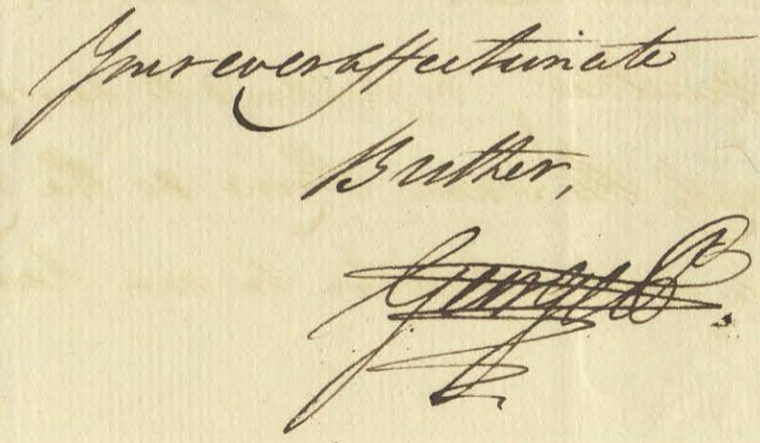 Your ever affectionate
Brother,
George P.